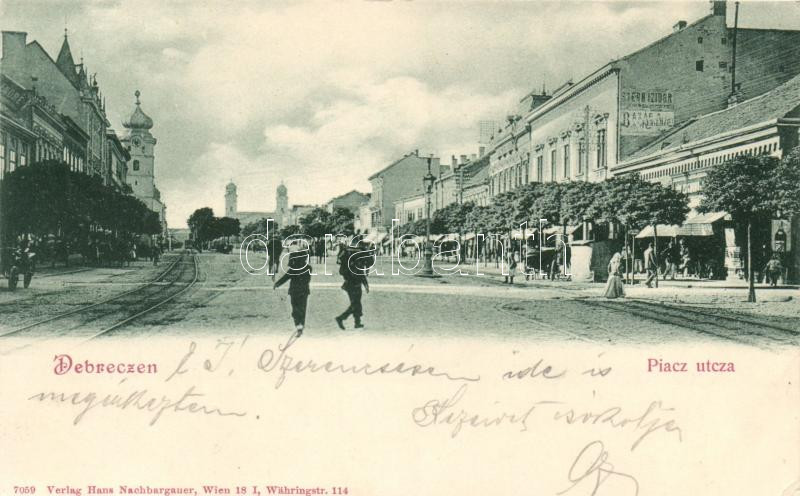 STERN IZIDOR
darabanth.com
Debreczen
Piacz utcza
Szerencsésen ide is
megérkeztem.
Kezeivet csókolja
7059 Verlag Hans Nachbargauer, Wien 18 I, Währingstr. 114